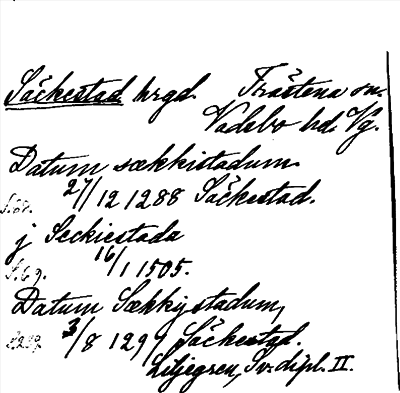 Säckestad hrgd. Fräštena sn.
Vadsbo hd. Vg.
Datum sækkistadum
S. 68. 27/12 1288 Säckestad.
j Seckiestada
S. 69. 16/1 1505.
Datum Sækkystadum,
3/8 1299 Säckestad.
Liljegren, Sv. dipl. II.